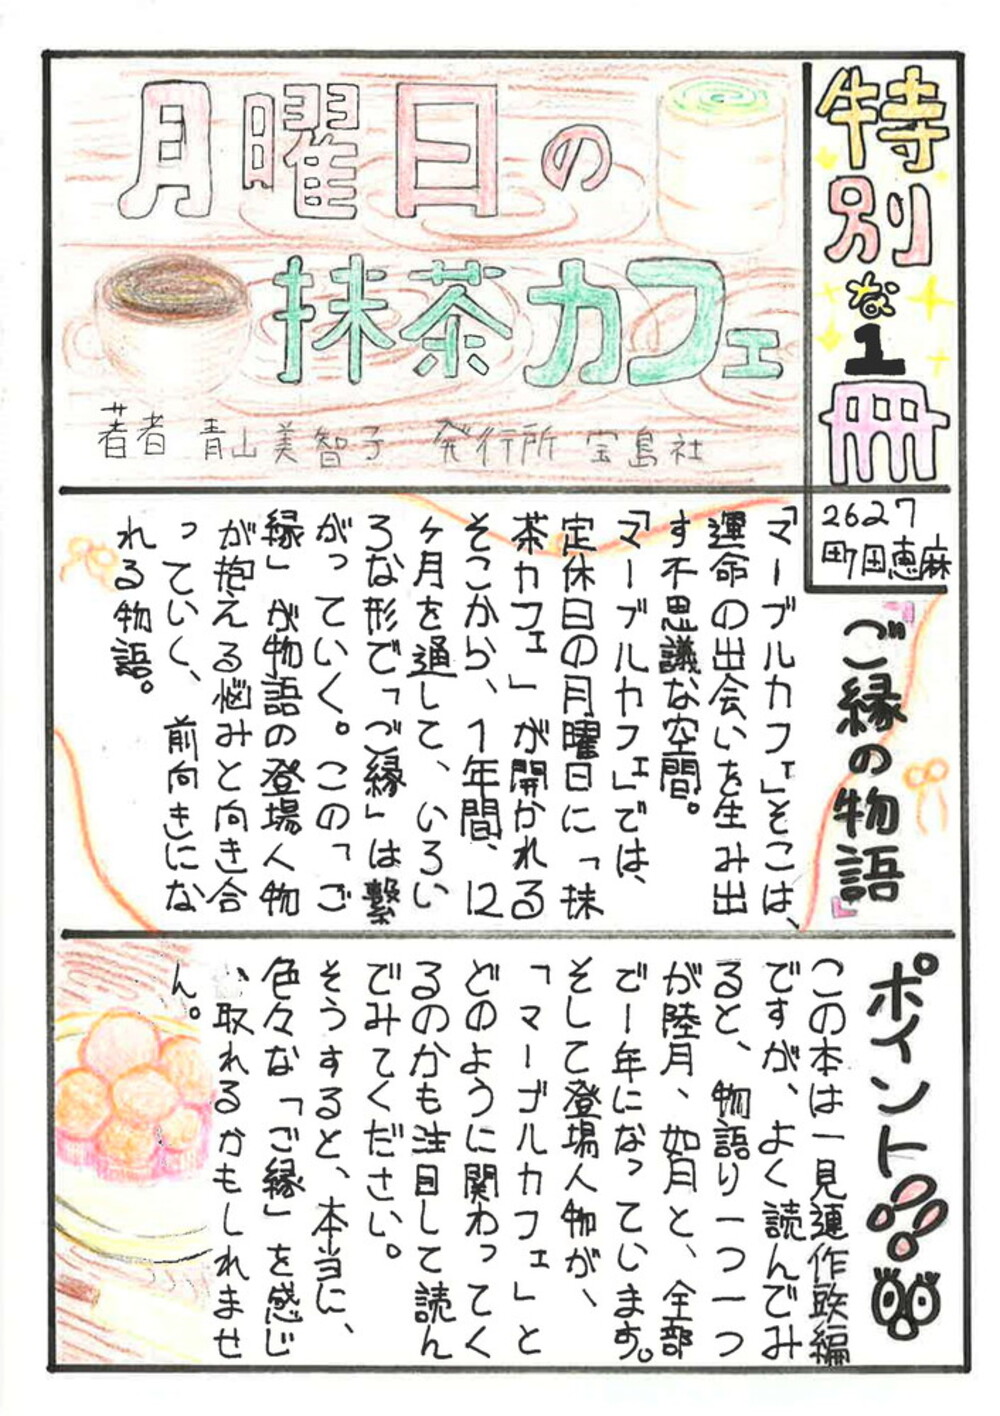 特別な1冊
月曜日の
抹茶カフェ
著者 青山美智子 発行所 宝島社
2627
町田恵麻
『ご縁の物語』
「マーブルカフェ」そこは、
運命の出会いを生み出
す不思議な空間。
「マーブルカフェ」では、
定休日の月曜日に「抹
茶カフェ」が開かれる
そこから、1年間、12
ヶ月を通して、いろい
ろな形で「ご縁」は繋
がっていく。この「ご
縁」が物語の登場人物
が抱える悩みと向き合
っていく、前向きにな
れる物語。
ポイント
この本は一見連作短編
ですが、よく読んでみ
ると、物語り一つ一つ
が睦月、如月と、全部
で一年になっています。
そして登場人物が、
「マーブルカフェ」と
どのように関わってく
るのかも注目して読ん
でみてください。
そうすると、本当に、
色々な「ご縁」を感じ
、取れるかもしれませ
ん。